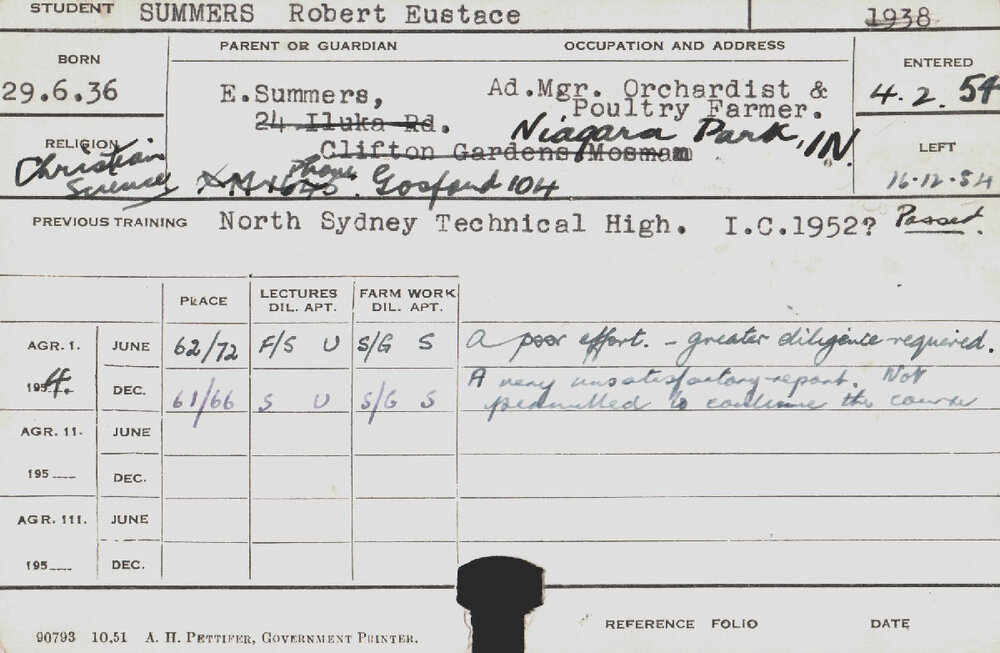 STUDENT SUMMERS Robert Eustace 1938
PARENT OR GUARDIAN OCCUPATION AND ADDRESS
BORN ENTERED
29.6.36 E.Summers, Ad.Mgr. Orchardist & 4.2.54
Poultry Farmer.
24 Iluka Rd. Niagara Park, IN.
RELIGION Clifton Gardens Mosman LEFT
Christian Phone
Science XM Gosford 104 16-12-54
PREVIOUS TRAINING North Sydney Technical High. I.C.1952? Passed.
PLACE LECTURES FARM WORK
DIL. APT. DIL. APT.
AGR. 1. JUNE 62/72 F/S U S/G S A poor effort. - greater diligence required.
1954. DEC. 61/66 S U S/G S A very unsatisfactory report. Not
permitted to continue the course
AGR. 11. JUNE
195 DEC.
AGR. 111. JUNE
195 DEC.
REFERENCE FOLIO DATE
90793 10.51 A. H. PETTIFER, GOVERNMENT PRINTER.